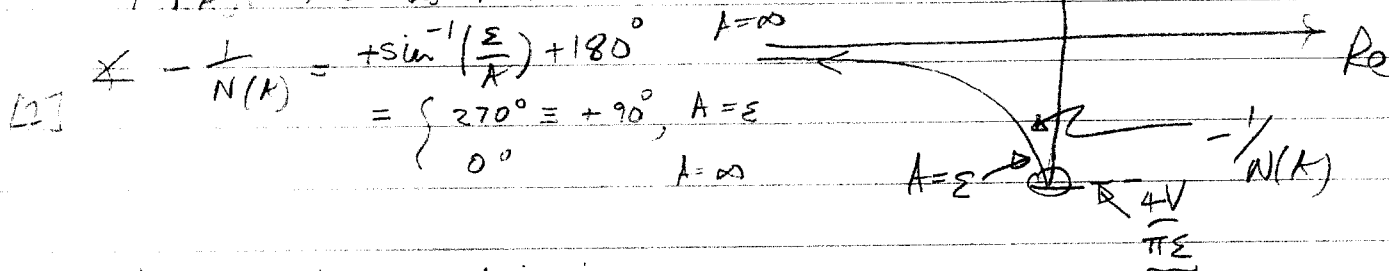 [2] ∠ - 1/N(A) = +sin⁻¹(ε/A) + 180°
= { 270° ≡ +90°, A = ε
0° A = ∞
A=∞
Re
-1/N(A)
A=ε
4V/πε